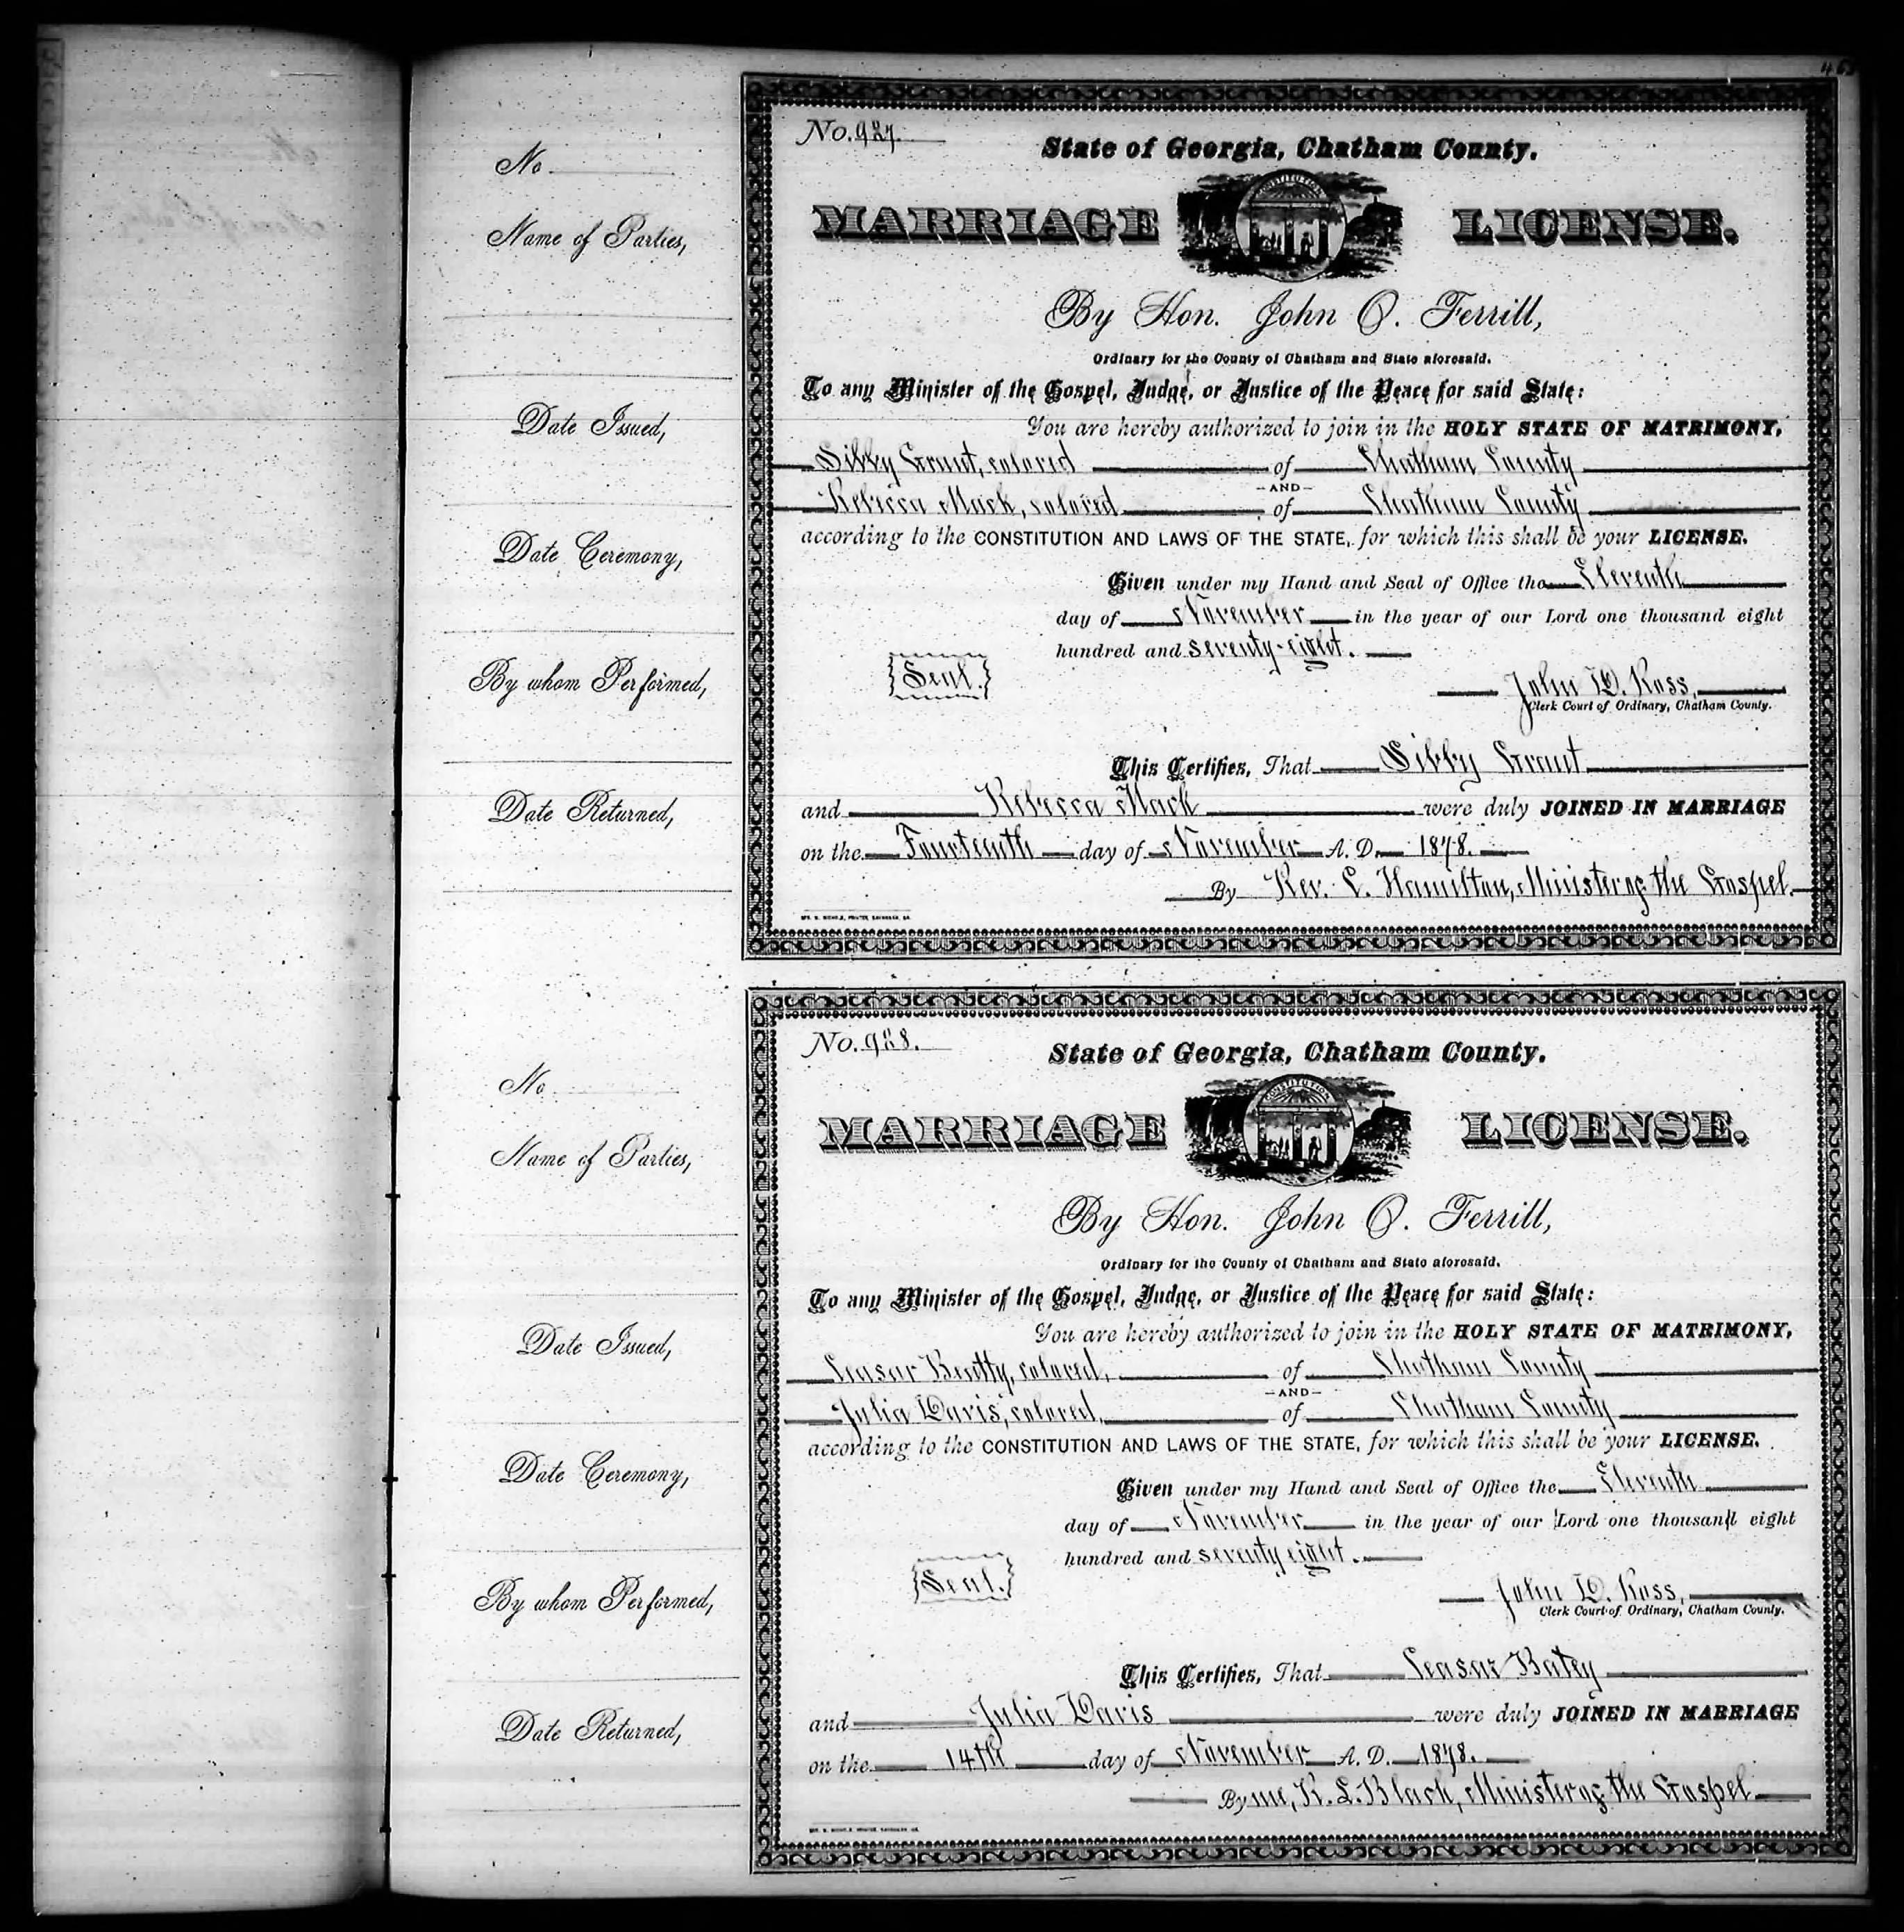 No. 927.
State of Georgia, Chatham County.
MARRIAGE LICENSE.
CONSTITUTION
By Hon. John O. Ferrill,
Ordinary for the County of Chatham and State aforesaid.
To any Minister of the Gospel, Judge, or Justice of the Peace for said State:
You are hereby authorized to join in the HOLY STATE OF MATRIMONY,
Sibby Grant, colored of Chatham County
-AND-
Rebecca Mack, colored of Chatham County
according to the CONSTITUTION AND LAWS OF THE STATE, for which this shall be your LICENSE.
Given under my Hand and Seal of Office the Eleventh
day of November in the year of our Lord one thousand eight
hundred and seventy-eight.
{Seal.}
John D. Ross,
Clerk Court of Ordinary, Chatham County.
This Certifies, That Sibby Grant
and Rebecca Mack were duly JOINED IN MARRIAGE
on the Fourteenth day of November A. D. 1878.
By Rev. L. Hamilton, Minister of the Gospel.
No.
Name of Parties,
Date Issued,
Date Ceremony,
By whom Performed,
Date Returned,
No. 928.
State of Georgia, Chatham County.
MARRIAGE LICENSE.
CONSTITUTION
By Hon. John O. Ferrill,
Ordinary for the County of Chatham and State aforesaid.
To any Minister of the Gospel, Judge, or Justice of the Peace for said State:
You are hereby authorized to join in the HOLY STATE OF MATRIMONY,
Ceasar Beatty, colored, of Chatham County
-AND-
Julia Davis, colored, of Chatham County
according to the CONSTITUTION AND LAWS OF THE STATE, for which this shall be your LICENSE.
Given under my Hand and Seal of Office the Eleventh
day of November in the year of our Lord one thousand eight
hundred and seventy eight.
{Seal.}
John D. Ross,
Clerk Court of Ordinary, Chatham County.
This Certifies, That Ceasar Batey
and Julia Davis were duly JOINED IN MARRIAGE
on the 14th day of November A. D. 1878.
By me, R. L. Black, Minister of the Gospel
No
Name of Parties,
Date Issued,
Date Ceremony,
By whom Performed,
Date Returned,